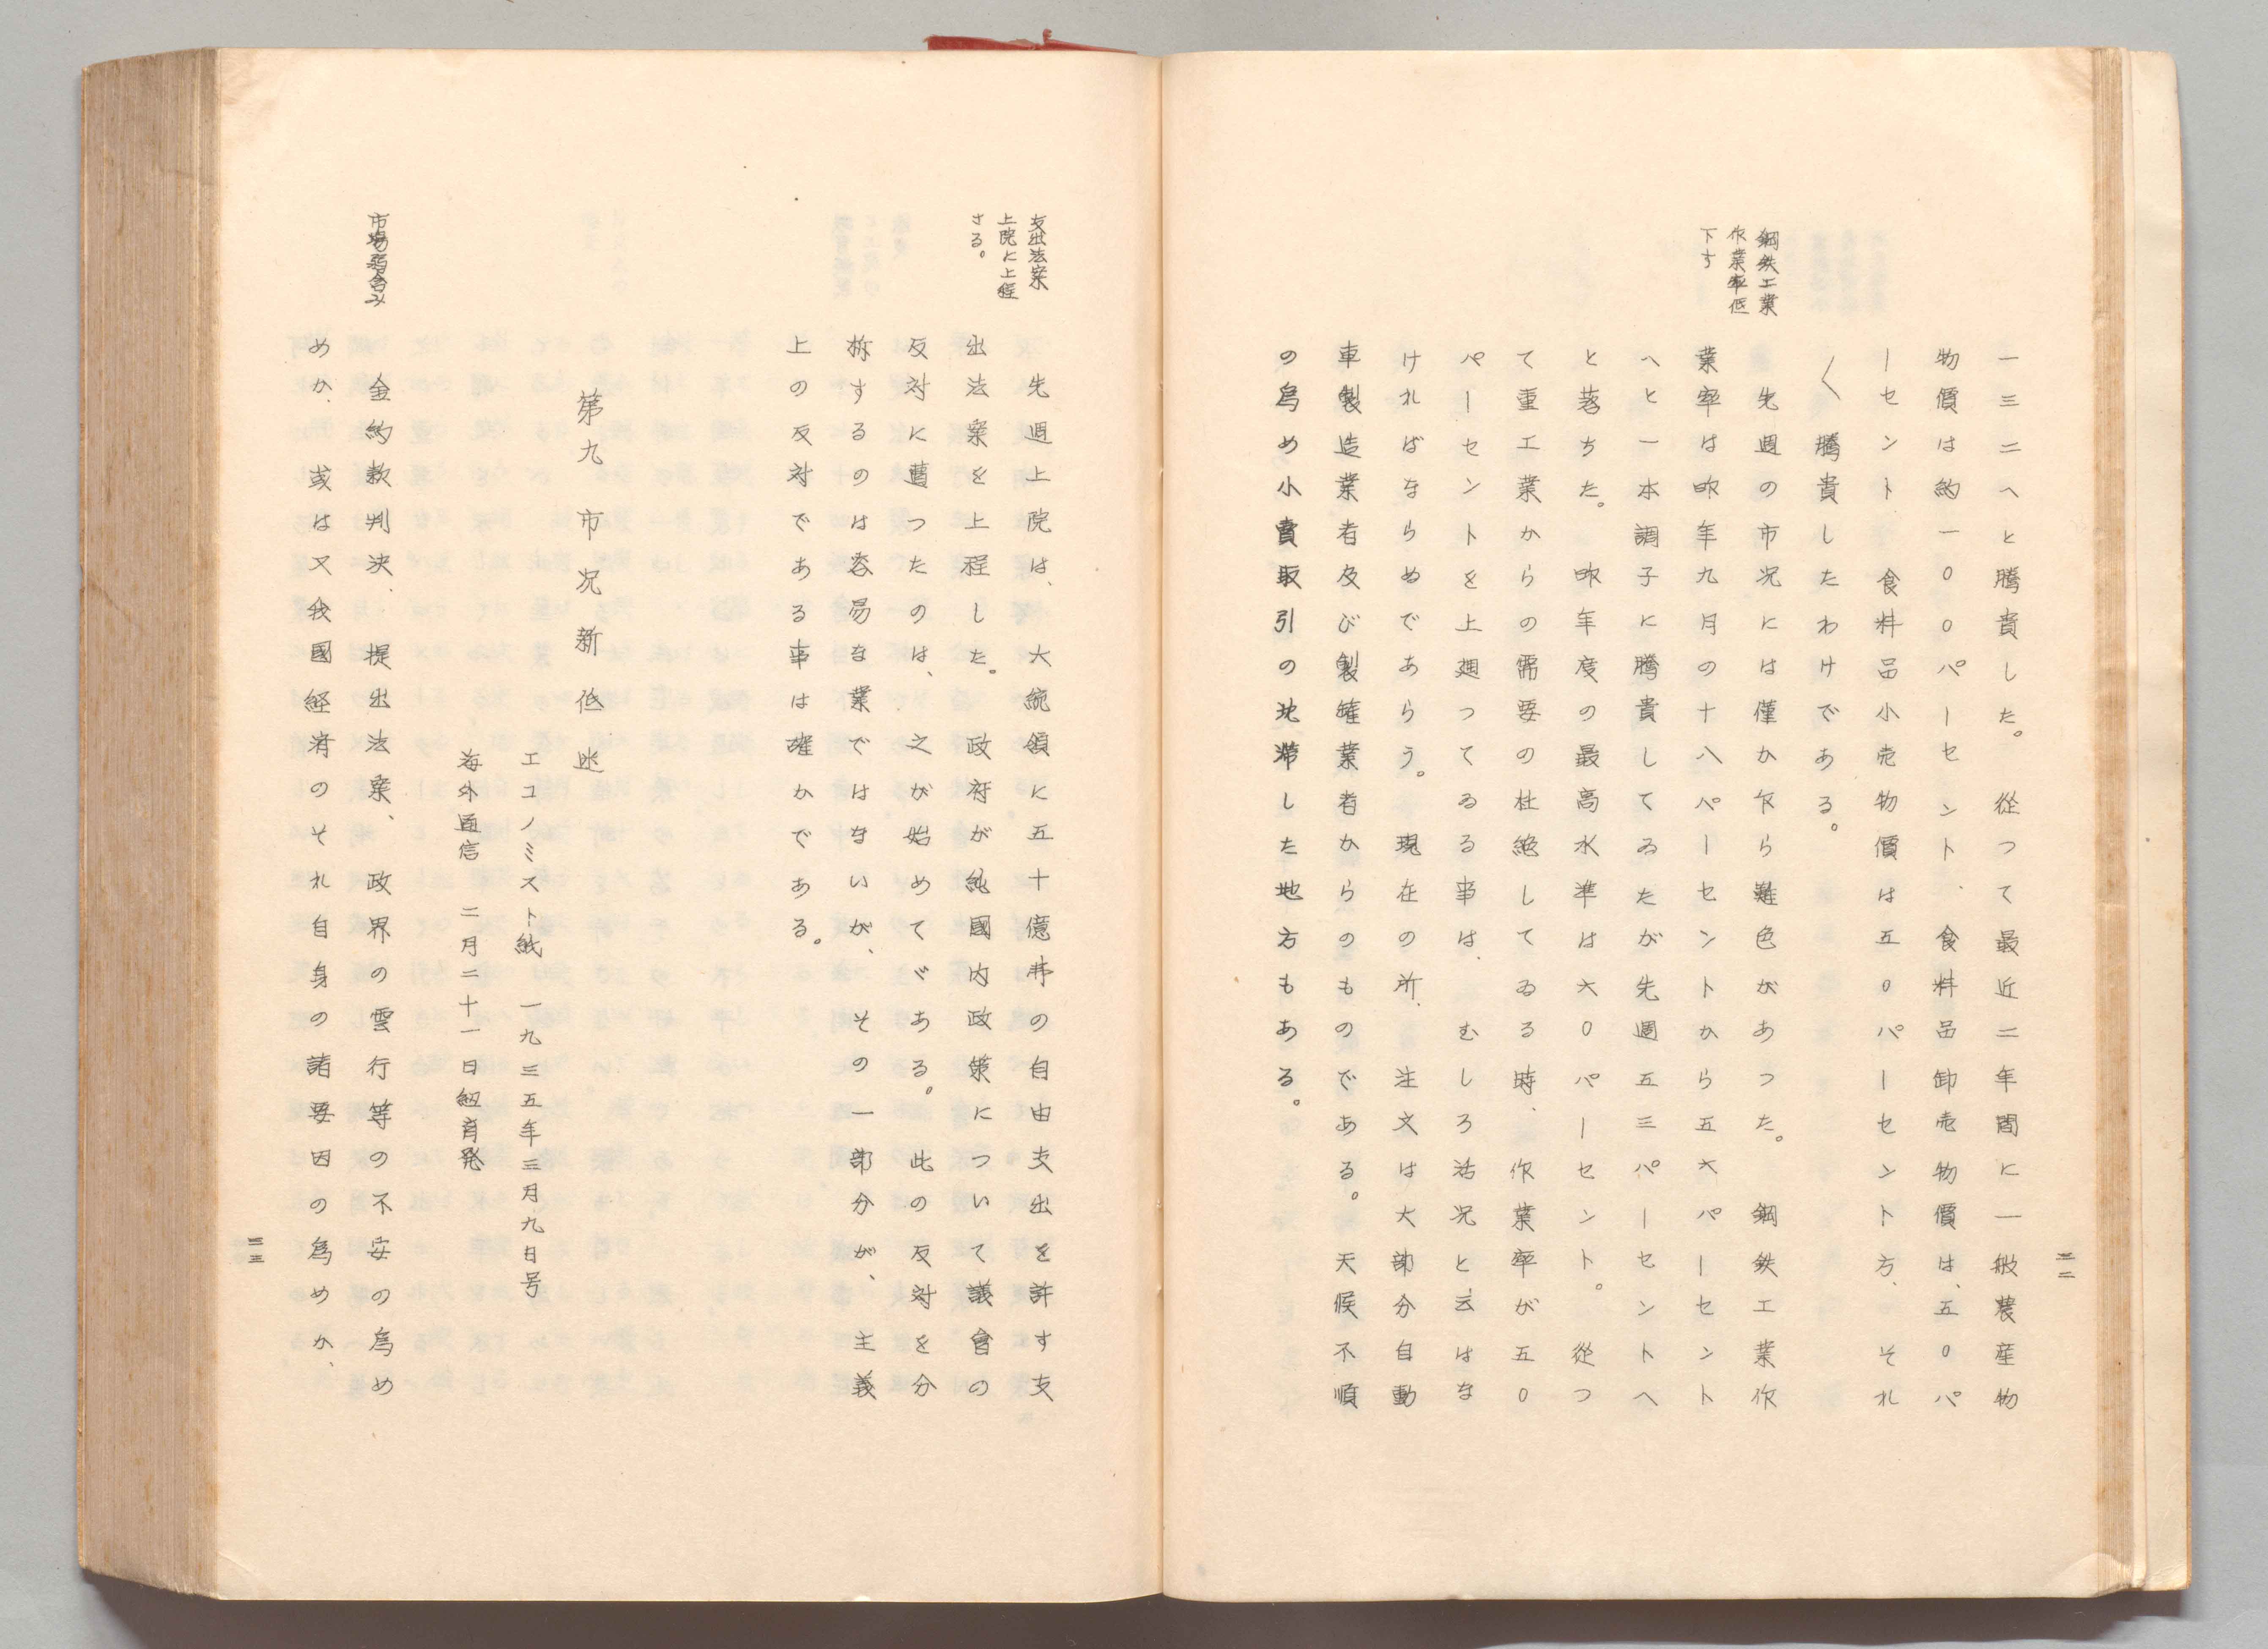 二二
一三二へと騰貴した。従つて最近二年間に一般農産物
物價は約一〇〇パーセント、食料品卸売物價は、五〇パ
ーセント、食料品小売物價は五〇パーセント方、それ
〱騰貴したわけである。
鋼鉄工業
作業率低
下す
先週の市况には僅か乍ら難色があつた。鋼鉄工業作
業率は昨年九月の十八パーセントから五六パーセント
へと一本調子に騰貴してゐたが先週五三パーセントへ
と落ちた。昨年度の最高水準は六〇パーセント。従つ
て重工業からの需要の杜絶してゐる時、作業率が五〇
パーセントを上廻つてゐる事は、むしろ活況と云はな
ければならぬであらう。現在の所、注文は大部分自動
車製造業者及び製罐業者からのものである。天候不順
の為め小賣取引の沈滞した地方もある。
支出法案
上院に上程
さる。
先週上院は、大統領に五十億弗の自由支出を許す支
出法案を上程した。政府が純國内政策について議會の
反対に遭つたのは、之が始めてゞある。此の反対を分
析するのは容易な業ではないが、その一部分が、主義
上の反対である事は確かである。
第九 市況新低迷
エコノミスト紙 一九三五年三月九日号
海外通信 二月二十一日紐育発
市場弱含み
金約款判決、提出法案、政界の雲行等の不安の為め
めか、或は又我國経済のそれ自身の諸要因の為めか、
二三